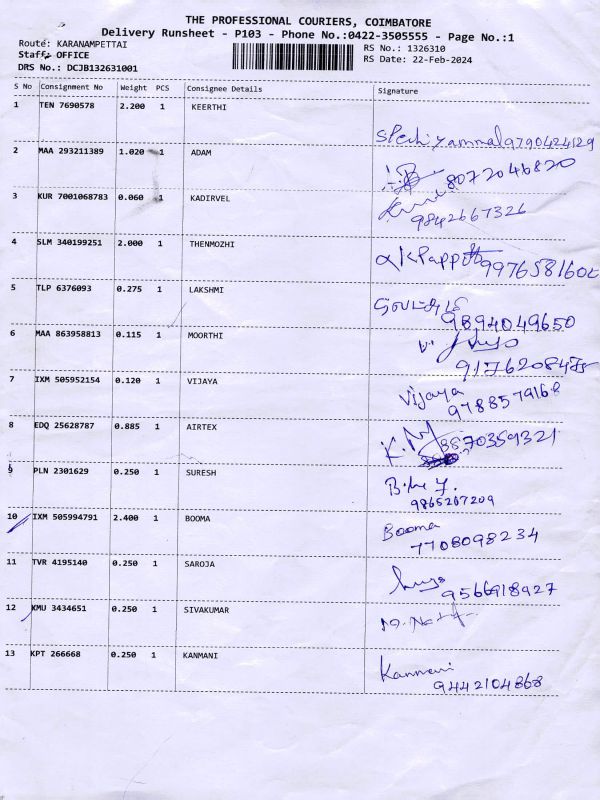 THE PROFESSIONAL COURIERS, COIMBATORE
Delivery Runsheet - P103 - Phone No.:0422-3505555 - Page No.:1
Route: KARANAMPETTAI
RS No.: 1326310
Staff: OFFICE
RS Date: 22-Feb-2024
DRS No.: DCJB132631001
S No Consignment No Weight PCS Consignee Details Signature
1 TEN 7690578 2.200 1 KEERTHI
9790424129
2 MAA 293211389 1.020 1 ADAM
8072046820
3 KUR 7001068783 0.060 1 KADIRVEL
9842667326
4 SLM 340199251 2.000 1 THENMOZHI
5 TLP 6376093 0.275 1 LAKSHMI
9894049650
6 MAA 863958813 0.115 1 MOORTHI
7 IXM 505952154 0.120 1 VIJAYA
Vijaya
9788579168
8 EDQ 25628787 0.885 1 AIRTEX
K.M 8870359321
9 PLN 2301629 0.250 1 SURESH
9865207209
10 IXM 505994791 2.400 1 BOOMA
Booma
7708098234
11 TVR 4195140 0.250 1 SAROJA
9566918927
12 KMU 3434651 0.250 1 SIVAKUMAR
13 KPT 266668 0.250 1 KANMANI
Kanmani
9442104868